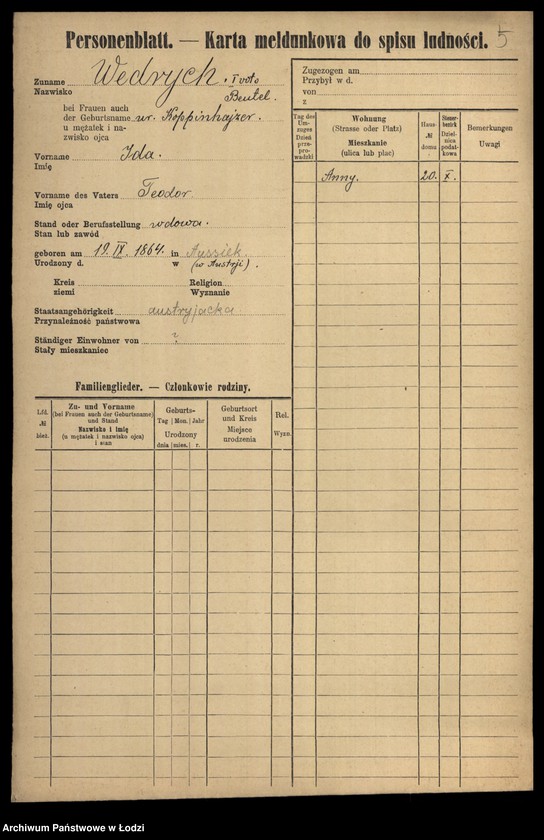 Personenblatt. — Karta meldunkowa do spisu ludności. 5
Zuname Wedrych, I voto
Nazwisko Beutel.
bei Frauen auch
der Geburtsname ur. Koppinhajzer.
u mężatek i na-
zwisko ojca
Vorname Ida.
Imię
Vorname des Vaters Teodor.
Imię ojca
Stand oder Berufsstellung wdowa.
Stan lub zawód
geboren am 19. IX. 1864. in Aussiek
Urodzony d. w (w Austrji).
Kreis Religion
ziemi Wyznanie
Staatsangehörigkeit austryjacka
Przynależność państwowa
Ständiger Einwohner von ?
Stały mieszkaniec
Familienglieder. — Członkowie rodziny.
Lfd.
№
bież.
Zu- und Vorname
(bei Frauen auch der Geburtsname)
und Stand
Nazwisko i imię
(u mężatek i nazwisko ojca)
i stan
Geburts-
Tag Mon. Jahr
Urodzony
dnia mies. r.
Geburtsort
und Kreis
Miejsce
urodzenia
Rel.
Wyzn.
Zugezogen am
Przybył w d.
von
z
Tag des
Um-
zuges
Dzień
prze-
prowadzki
Wohnung
(Strasse oder Platz)
Mieszkanie
(ulica lub plac)
Haus-
№
domu
Steuer-
bezirk
Dziel-
nica
podat-
kowa
Bemerkungen
Uwagi
Anny. 20. X.
Archiwum Państwowe w Łodzi